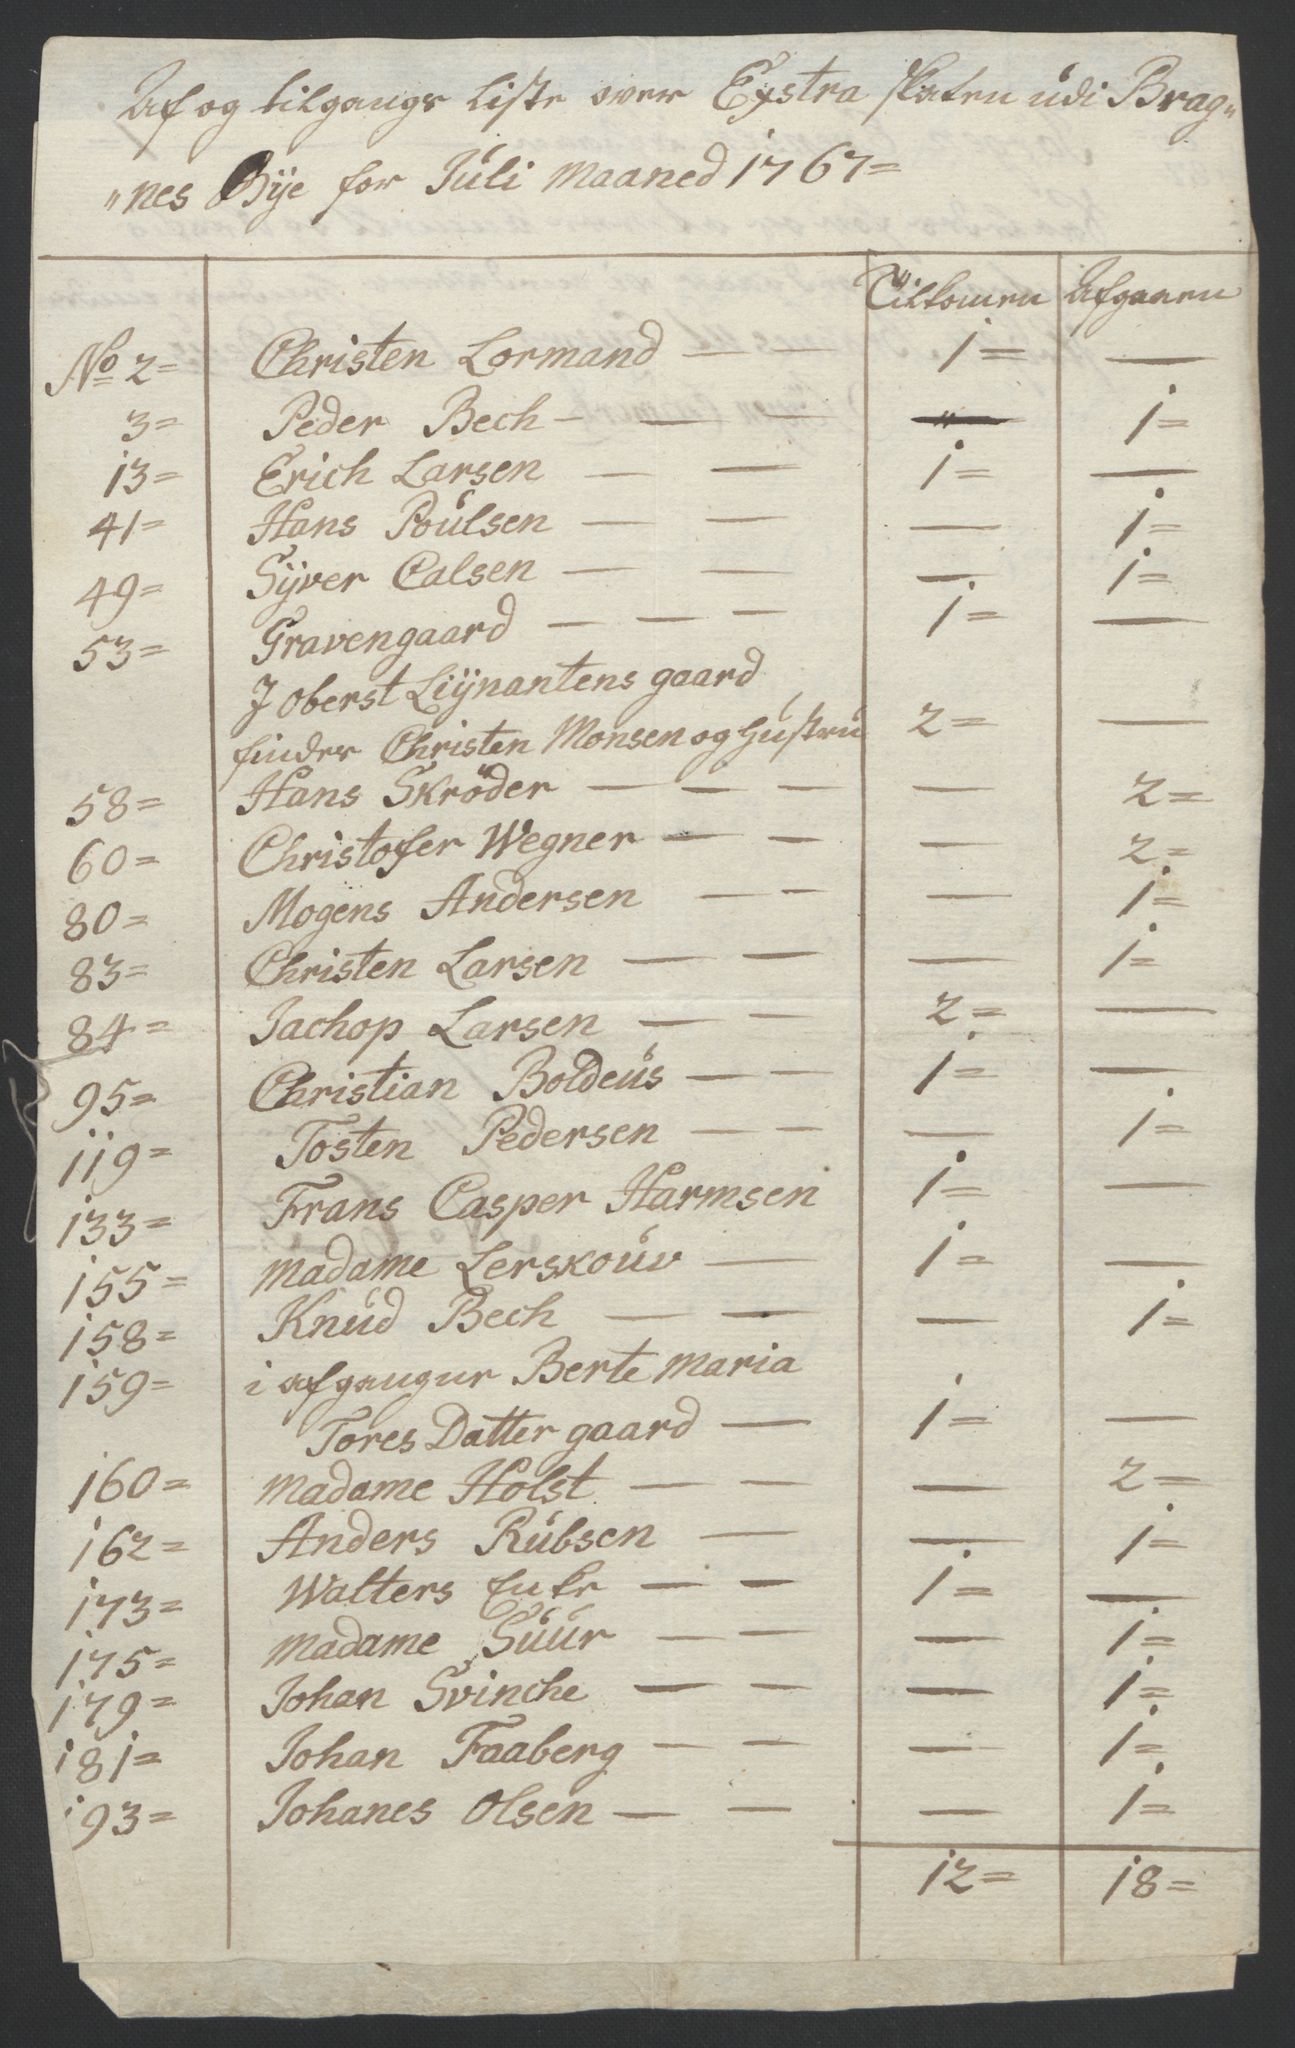 Af og tilgangs Liste over Exstra skaten udi Brag„
„nes Bye for Júli Maaned 1767=
Tilkomen Afgaaen
No 2= Christen Lormand — — 1= —
3= Peder Bech — — — — 1=
13= Erich Larsen — — 1= —
41= Hans Poúlsen — — — 1=
49= Sÿver Calsen — — — 1=
53= Gravengaard — — — 1= —
J Oberst Liÿnantens gaard
findes Christen Monsen og Hústrú 2= —
58= Hans Skröder — — — — 2=
60= Christofer Wegner — — — 2=
80= Mogens Andersen — — — 1=
83= Christen Larsen — — — 1=
84= Jachop Larsen — — 2= —
95= Christian Boldeús — — 1= —
119= Tosten Pedersen — — — 1=
133= Frans Casper Harmsen 1= —
155= Madame Lerskoúv — 1= —
158= Knúd Bech — — — 1=
159= i afgangne Berte Maria
Tores Datter gaard — 1= —
160= Madame Holst — — — 2=
162= Anders Rúbsen — — 1=
173= Walters Enke — — 1= —
175= Madame Súúr — — — 1=
179= Johan Svinche — — — 1=
181= Johan Faaberg — — — 1=
193= Johanes Olsen — — — 1=
12= 18=